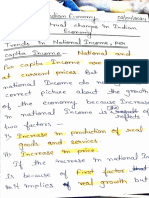 Indian Economy
Structural changes in Indian
Economy
Trends in National Income, per
capita Income - National and
Per capita Income are
at current prices. But
national Income do not
correct picture about the growth
of the economy because Increase
in national Income is
two factors -
1) Increase in production of real
goods and services
2) Increase in price.
If the increase in national In
is because of first factor that
it implies real growth but